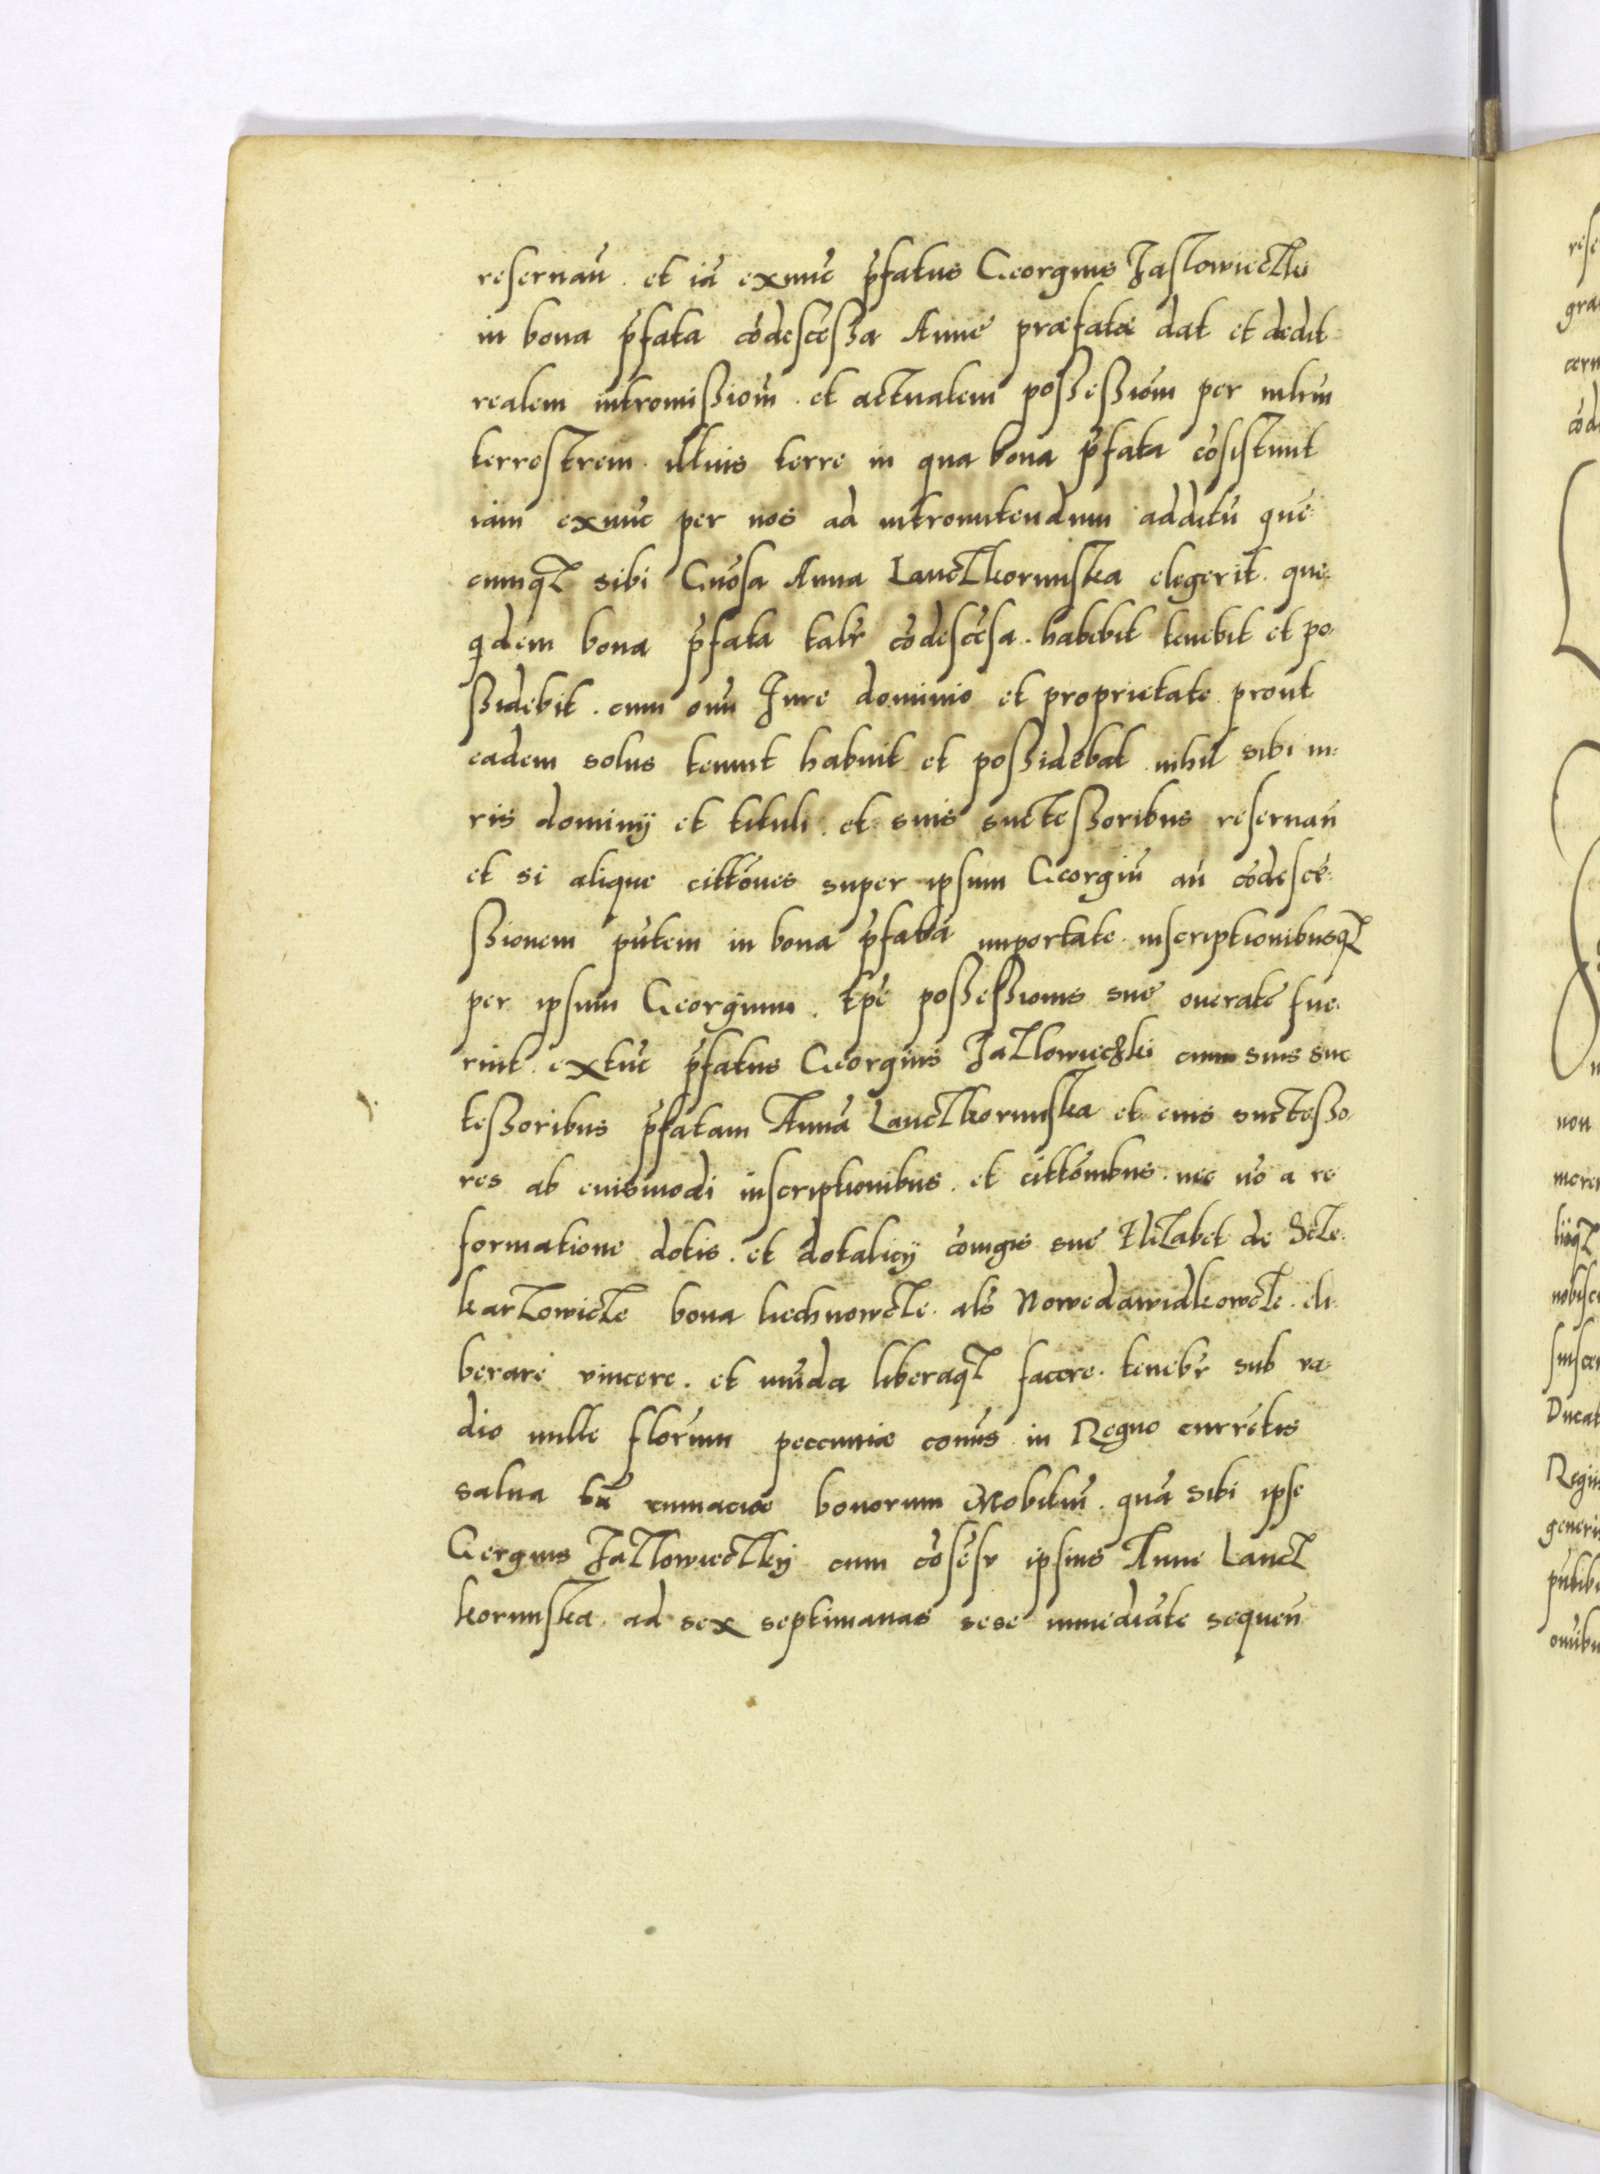 reseruan̄ . et iā exnūc p̄fatus Georgius Jaslowieczki
in bona p̄fata cōdescessa Anne præfatæ dat et dedit
realem intromissioēm . et actualem possessioēm per mīlrm
terrestrem . illius terre in qua bona p̄fata cōsistunt
iam exnūc per nos ad intromittendum additū que
cumqȝ sibi Gnōsa Anna Lanczkorunska elegerit . que
qdem bona p̄fata talr̄ cōdescēsa . habebit tenebit et po
ssidebit . cum om̄i Jure dominio et proprietate prout
eadem solus tenuit habuit et possidebat nihil sibi iu
ris dominij et tituli . et suis suctessoribus reseruan̄
et si alique cittōnes super ipsum Georgiū an̄ cōdescē
ssionem p̄ntem in bona p̄fata importate . inscriptionibusqȝ
per ipsum Georgium . tp̄e possessionis sue onerate fue
rint . extūc p̄fatus Georgius Jazlowieczki cum suis suc
tessoribus p̄fatam Annā Lanczkorunska et eius suctesso
res ab eiusmodi inscriptionibus . et cittōnibus . nec nō a re
formatione dotis . et dotalicij cōiugis sue Elizabet de Scze
karzowicze bona liechnowcze . als Nowedawidkowcze . eli
berare vincere . et mūda liberaqȝ facere . tenebr̄ sub va
dio mille florēum peccuniæ cōmūs in Regno currētis
salua tn̄ bonorum Mobiliū . quā sibi ipse
Gergius Jazlowieczkij cum cōsēsu ipsius Anne Lancz
korunska . ad sex septimanas sese immediate sequen̄